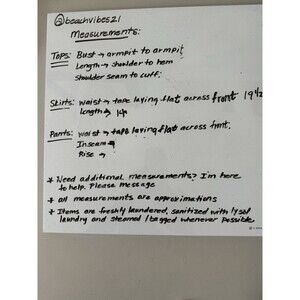 @beachvibes21
Measurements:
Tops: Bust → armpit to armpit
Length → shoulder to hem
Shoulder seam to cuff:
Skirts: waist → tape laying flat across front 19 1/2
Length → 14
Pants: waist → tape laying flat across frnt.
Inseam →
Rise →
* Need additional measurements? I'm here
to help. Please message
* all measurements are approximations
* Items are freshly laundered, sanitized with lysol
laundry and steamed / bagged whenever possible